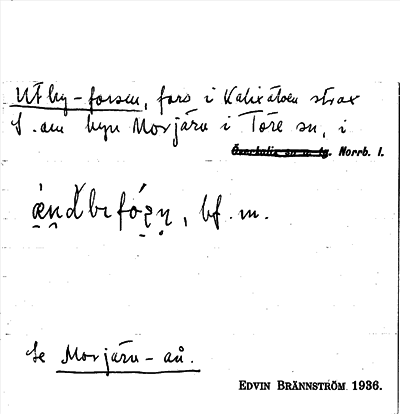 Utby-forsen, fors i Kalixälven strax
S. om byn Morjärv i Töre sn, i
Överkalix sn o. tg. Norrb. l.
, bf. m.
Se Morjärv-ån.
EDVIN BRÄNNSTRÖM 1936.